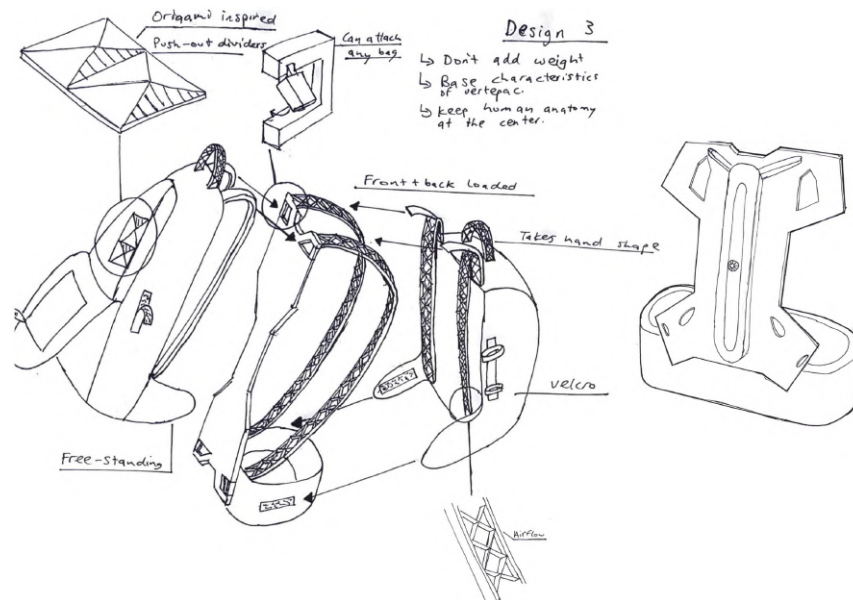 Origami inspired
Push-out dividers
Can attach
any bag
Design 3
↳ Don't add weight
↳ Base characteristics
of vertepac.
↳ keep human anatomy
at the center.
Front + back loaded
Takes hand shape
velcro
Free-standing
Airflow